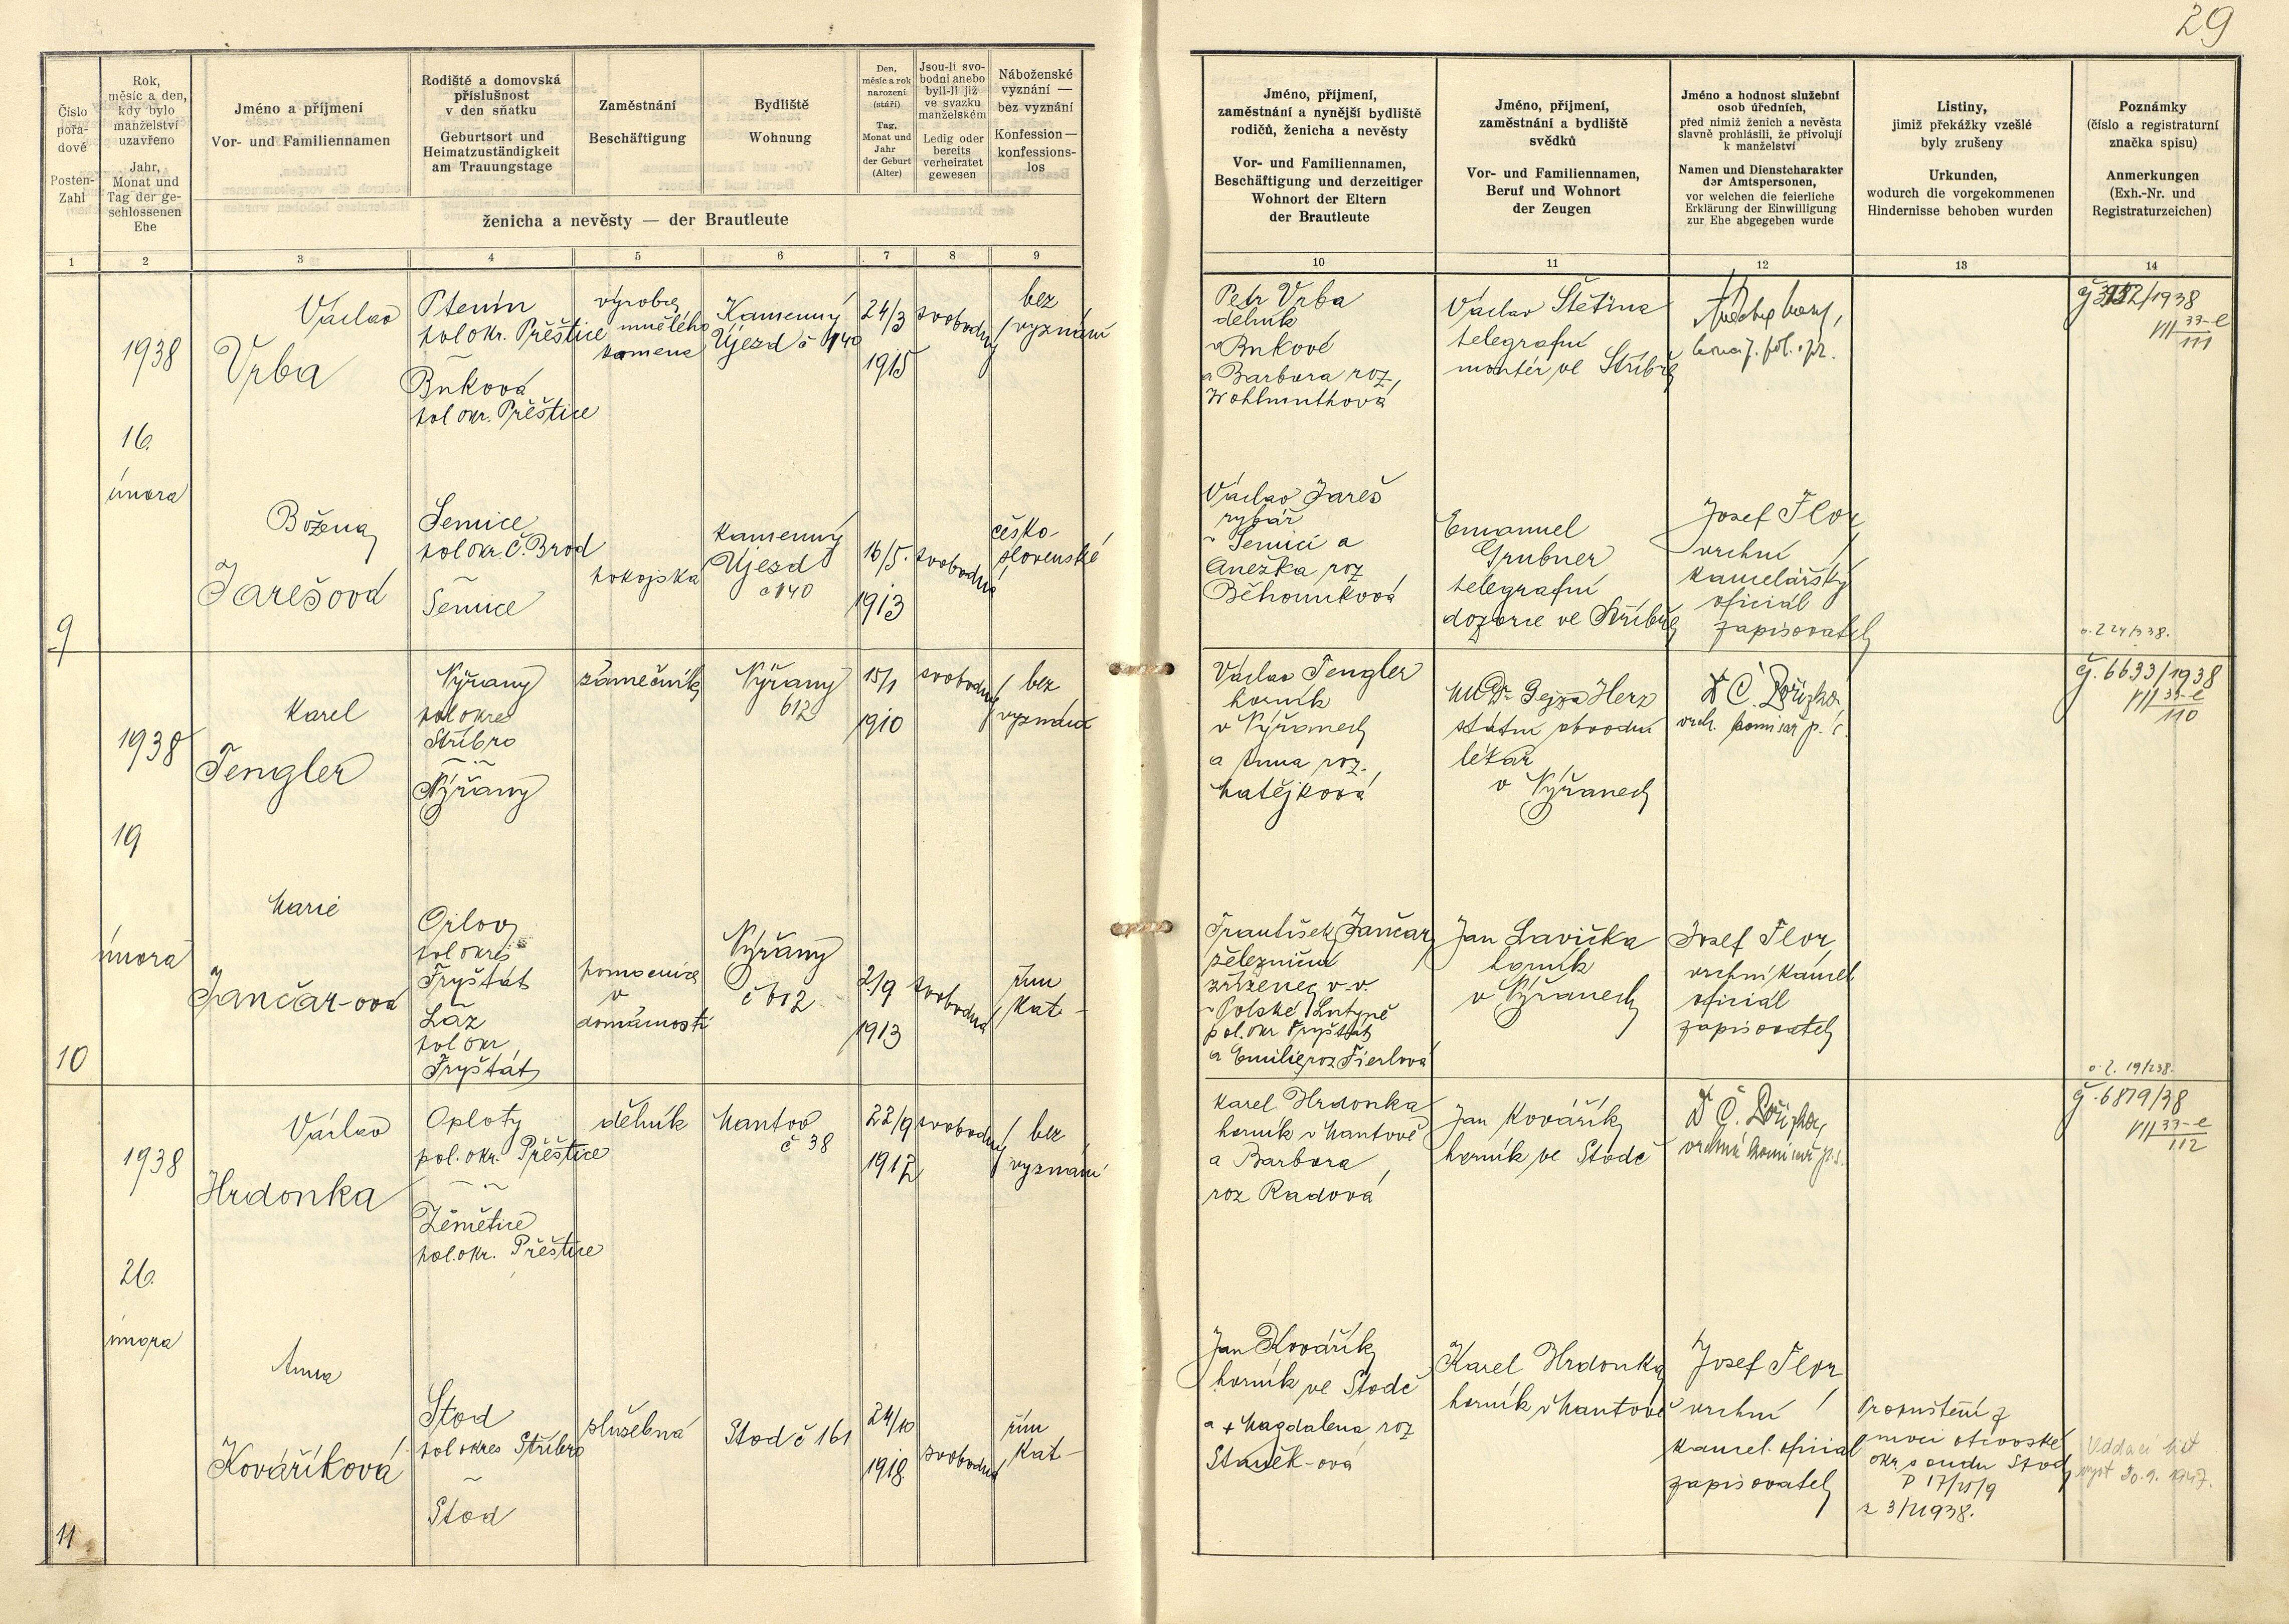 29
Číslo
pořa-
dové
Posten-
Zahl
Rok,
měsíc a den,
kdy bylo
manželství
uzavřeno
Jahr,
Monat und
Tag der ge-
schlossenen
Ehe
Jméno a příjmení
Vor- und Familiennamen
Rodiště a domovská
příslušnost
v den sňatku
Geburtsort und
Heimatzuständigkeit
am Trauungstage
Zaměstnání
Beschäftigung
Bydliště
Wohnung
Den,
měsíc a rok
narození
(stáří)
Tag,
Monat und
Jahr
der Geburt
(Alter)
Jsou-li svo-
bodni anebo
byli-li již
ve svazku
manželském
Ledig oder
bereits
verheiratet
gewesen
Náboženské
vyznání —
bez vyznání
Konfession —
konfessions-
los
ženicha a nevěsty — der Brautleute
Jméno, příjmení,
zaměstnání a nynější bydliště
rodičů, ženicha a nevěsty
Vor- und Familiennamen,
Beschäftigung und derzeitiger
Wohnort der Eltern
der Brautleute
Jméno, příjmení,
zaměstnání a bydliště
svědků
Vor- und Familiennamen,
Beruf und Wohnort
der Zeugen
Jméno a hodnost služební
osob úředních,
před nimiž ženich a nevěsta
slavně prohlásili, že přivolují
k manželství
Namen und Dienstcharakter
der Amtspersonen,
vor welchen die feierliche
Erklärung der Einwilligung
zur Ehe abgegeben wurde
Listiny,
jimiž překážky vzešlé
byly zrušeny
Urkunden,
wodurch die vorgekommenen
Hindernisse behoben wurden
Poznámky
(číslo a registraturní
značka spisu)
Anmerkungen
(Exh.-Nr. und
Registraturzeichen)
1 2 3 4 5 6 7 8 9 10 11 12 13 14
9
1938
16.
února
Václav
Vrba
Ptenín
pol okr. Přeštice
~
Buková
pol okr. Přeštice
výrobce
umělého
kamene
Kamenný
Újezd č 140
24/3
1915
svobodný
bez
vyznání
Petr Vrba
dělník
v Bukové
a Barbora roz.
Wohlmuthová
Václav Štětina
telegrafní
montér ve Stříbře
VII 33-e
111
Božena
Jarešová
Semice
pol okr. Č. Brod
~
Semice
pokojská
Kamenný
Újezd
č 140
16/5.
1913
svobodná
česko-
slovenské
Václav Jareš
rybář
v Semici a
Anežka roz
Běhounková
Emanuel
Grubner
telegrafní
dozorce ve Stříbře
Josef Flor
vrchní
kancelářský
oficiál
zapisovatel
10
1938
19
února
Karel
Fengler
Nýřany
pol okres
Stříbro
~
Nýřany
zámečník
Nýřany
612
15/1
1910
svobodný
bez
vyznání
Václav Fengler
horník
v Nýřanech
a Anna roz.
Matějková
MUDr. Gejza Herz
státní obvodní
lékař
v Nýřanech
Č. 6633/1938
VII 33-e
110
Marie
Jančar-ová
Orlov
pol okres
Fryštát
Láz
pol okr
Fryštát
pomocnice
v
domácnosti
Nýřany
č 612
2/9
1913
svobodná
řím
kat-
František Jančar
železniční
zřízenec v. v.
v Polské Lutyně
pol. okr Fryštát
a Emilie roz Fierlová
Jan Lavička
horník
v Nýřanech
Josef Flor
vrchní kancel
oficiál
zapisovatel
11
1938
26.
února
Václav
Hrdonka
Oploty
pol. okr. Přeštice
~
Zěmětice
pol. okr. Přeštice
dělník
Mantov
č 38
22/9
1912
svobodný
bez
vyznání
Karel Hrdonka
horník v Mantově
a Barbora
roz Radová
Jan Kovářík
horník ve Stodě
č. 6879/38
VII 33-e
112
Anna
Kováříková
Stod
pol okres Stříbro
~
Stod
služebná
Stod č 161
24/10
1918
svobodná
řím
kat-
Jan Kovářík
horník ve Stodě
a + Magdalena roz
Staněk-ová
Karel Hrdonka
horník v Mantově
Josef Flor
vrchní
kancel. oficial
zapisovatel
Propuštění z
moci otcovské
okr. soudu Stod
Oddací list